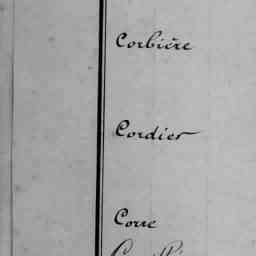 Corbière
Cordier
Corre